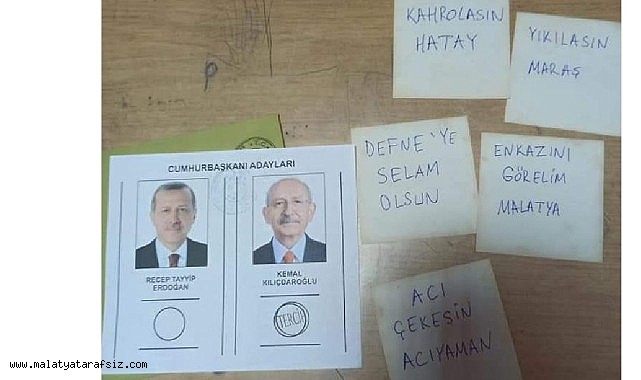 KAHROLASIN
HATAY
YIKILASIN
MARAŞ
DEFNE'YE
SELAM
OLSUN
ENKAZINI
GÖRELİM
MALATYA
CUMHURBAŞKANI ADAYLARI
RECEP TAYYİP
ERDOĞAN
KEMAL
KILIÇDAROĞLU
TERCİH
ACI
ÇEKEŞİN
ACIYAMAN
www.malatyatarafsiz.com